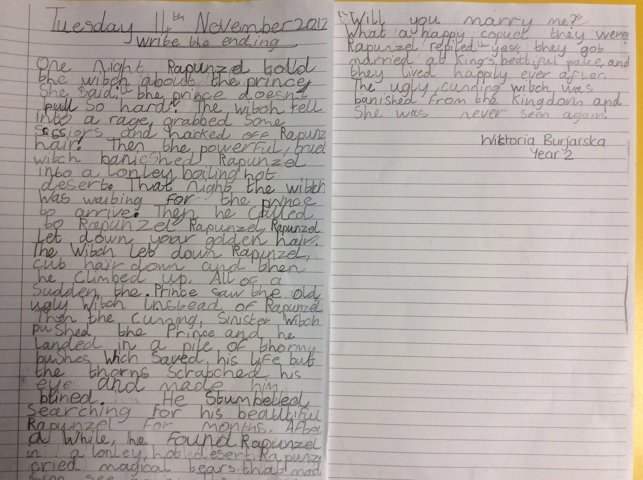 Tuesday 14th November 2017
Write the ending
One night Rapunzel told
the witch about the prince
She said "the prince doesn't
pull so hard". The witch fell
into a rage, grabbed some
scssiors and hacked off Rapunz
hair. Then the powerful, cruel
witch banished Rapunzel
into a lonley boiling hot
desert. That night the witch
was waiting for the prince
to arrive. Then he called
to Rapunzel Rapunzel, Rapunzel
Let down your golden hair.
The Witch let down Rapunzel,
cut hair down and then
he climbed up. All of a
sudden the Prince saw the old,
ugly witch instead of Rapunzel
Then the cunning, sinister witch
pushed the Prince and he
landed in a pile of thorny
bushes wich saved his life but
the thorns scratched his
eyes and made him
blined. He stumbelled
searching for his beautiful
Rapunzel for months. After
a while, he found Rapunzel
in a lonley, hot desert. Rapunz
cried magical tears that mad
him see
"Will you marry me?"
What a happy copuel they were
Rapunzel replied "yes, they got
married at King's beatiful palice, and
they lived happily ever after.
The ugly cunning witch, was
banished from the Kingdom and
She was never seen again.
Wiktoria Burjarska
Year 2